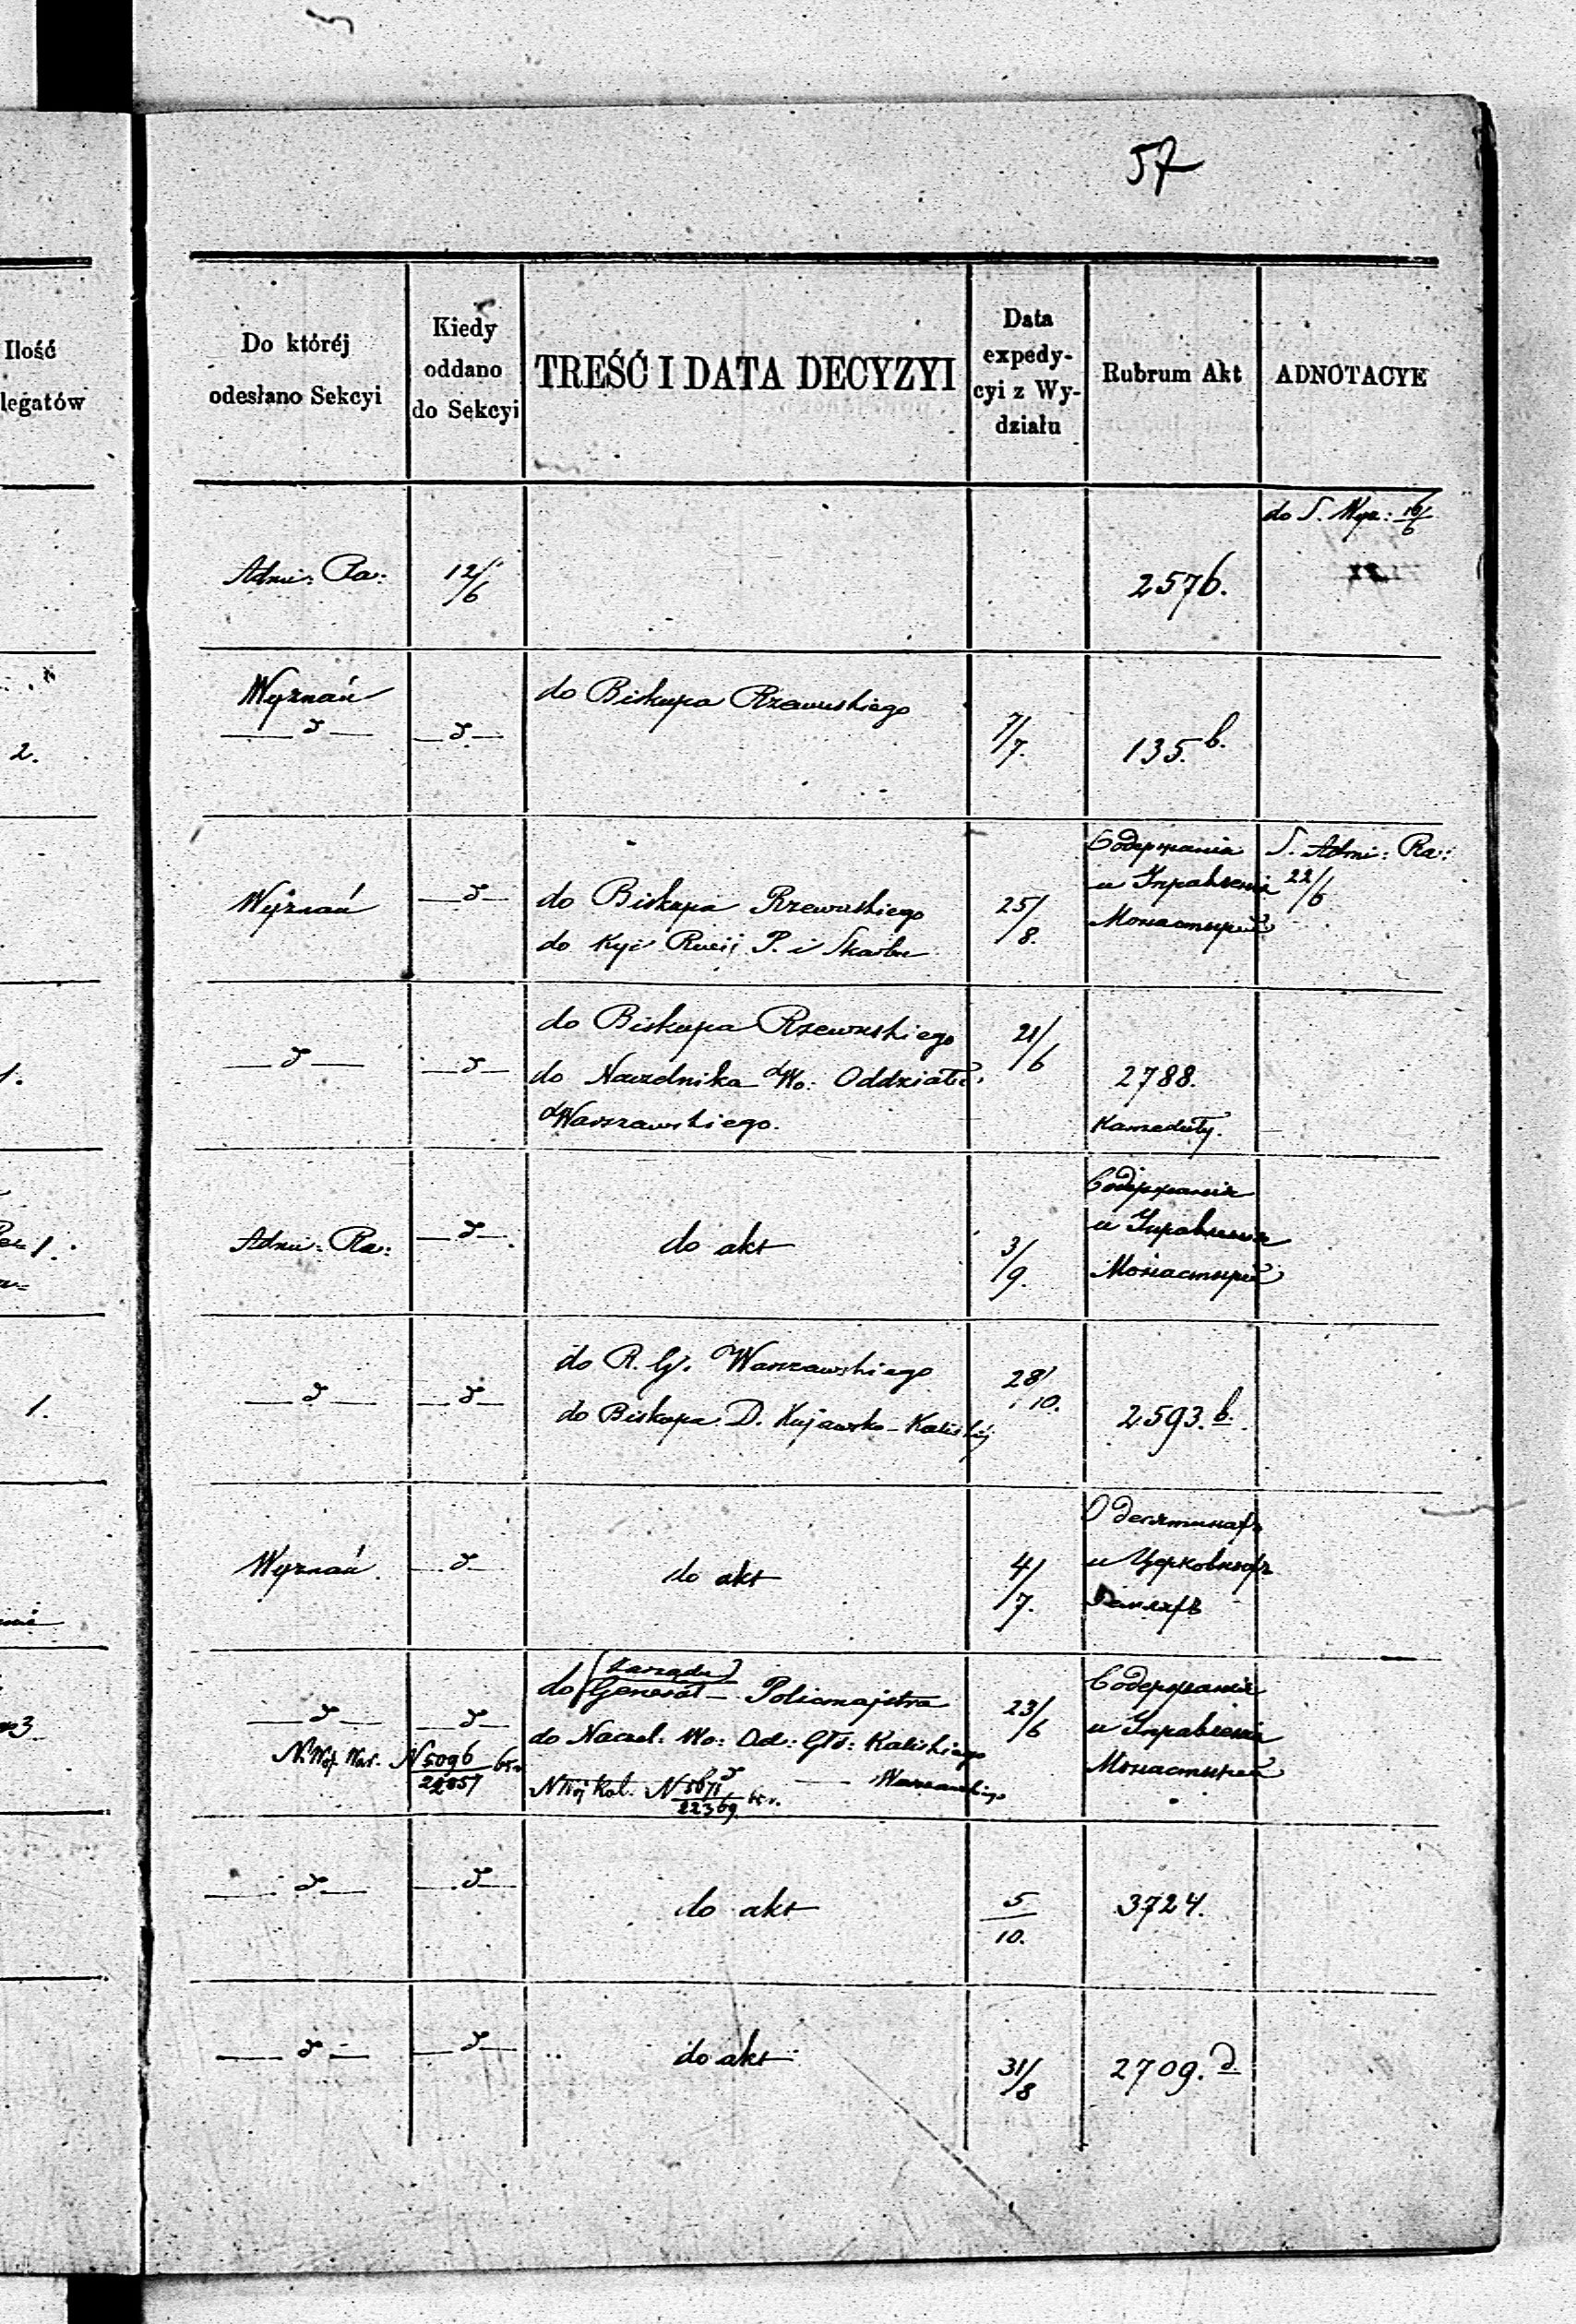 57
Ilość
legatów
Do któréj
odesłano Sekcyi
Kiedy
oddano
do Sekcyi
TREŚĆ I DATA DECYZYI
Data
expedy-
cyi z Wy-
działu
Rubrum Akt
ADNOTACYE
do S. Wyz: 16/6
Admi: Ra:
12/6
2576.
2.
Wyznań
—д—
—д—
do Biskupa Rzewuskiego
7/7.
135.b.
Wyznań
—д—
do Biskupa Rzewuskiego
do Kyi P. i Skarbu
25/8.
Содержанія
и Управленія
Монастырей
S. Admi: Ra:
22/6
1.
—д—
—д—
do Biskupa Rzewuskiego
do Naczelnika Wo: Oddziału
Warszawskiego.
21/6
2788.
Kameduły.
1.
Admi: Ra:
—д—
do akt
3/9.
Содержанія
и Управленія
Монастырей
1.
—д—
—д—
do R. G. Warszawskiego
do Biskupa D. Kujawsko-Kaliskiéj
28/10.
2593.b.
Wyznań.
—д—
do akt
4/7.
О десятинахъ
и Церковныхъ
Земляхъ
3
—д—
—д—
(Zarządu)
do Generał- Policmajstra
do Naczel: Wo: Od: Głó: Kaliskiego
—д— Warszawskiego
N. Woj. War. N 5096/22857
N Woj Kal. N 5671/22369.
23/6
Содержанія
и Управленія
Монастырей
—д—
—д—
do akt
5/10.
3724.
—д—
—д—
do akt
31/8
2709.д